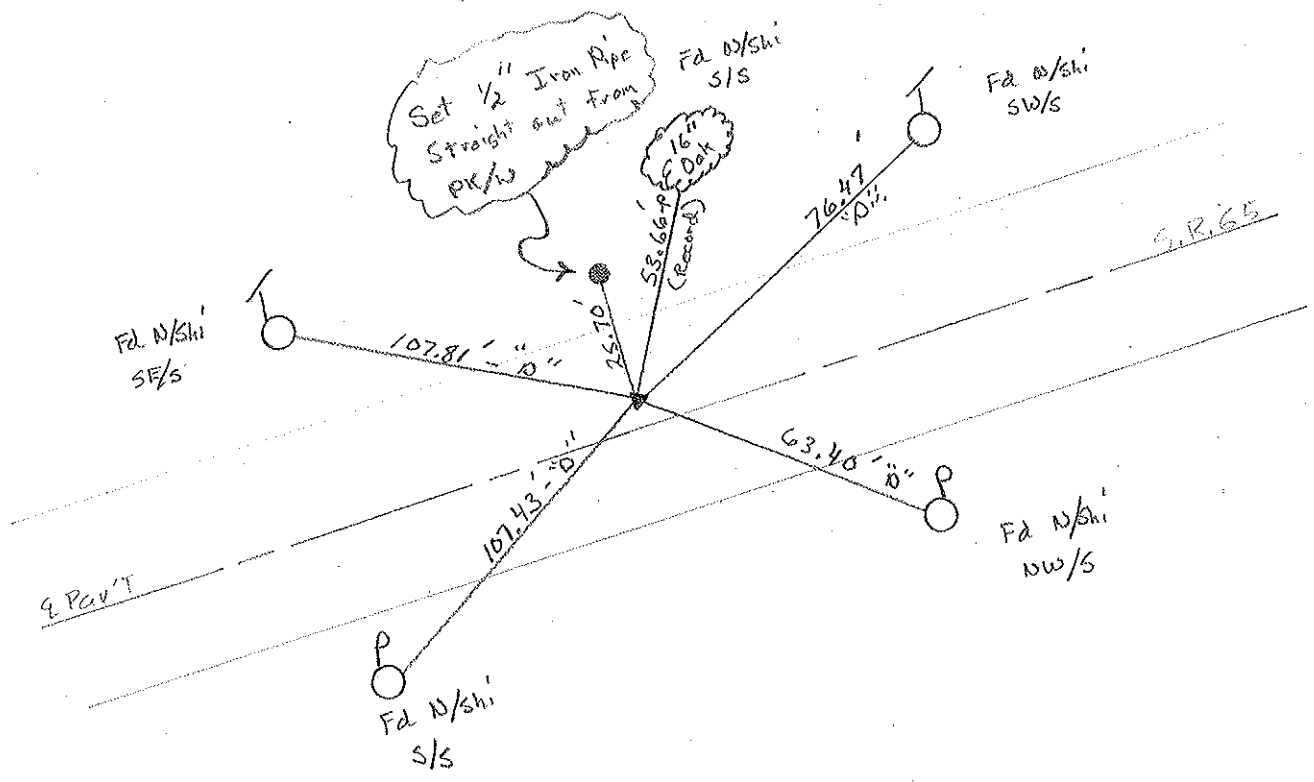 Set 1/2" Iron Pipe
Straight out from
PK/N
Fd N/Shi
S/S
16"
Oak
Fd N/Shi
SW/S
53.66'-P
(Record)
76.47'
"D"
S.R. 65
25.70'
Fd N/Shi
SE/S
107.81'-"D"
63.40'-"D"
107.43'-"D"
P
Fd N/Shi
NW/S
℄ Pav'T
P
Fd N/Shi
S/S